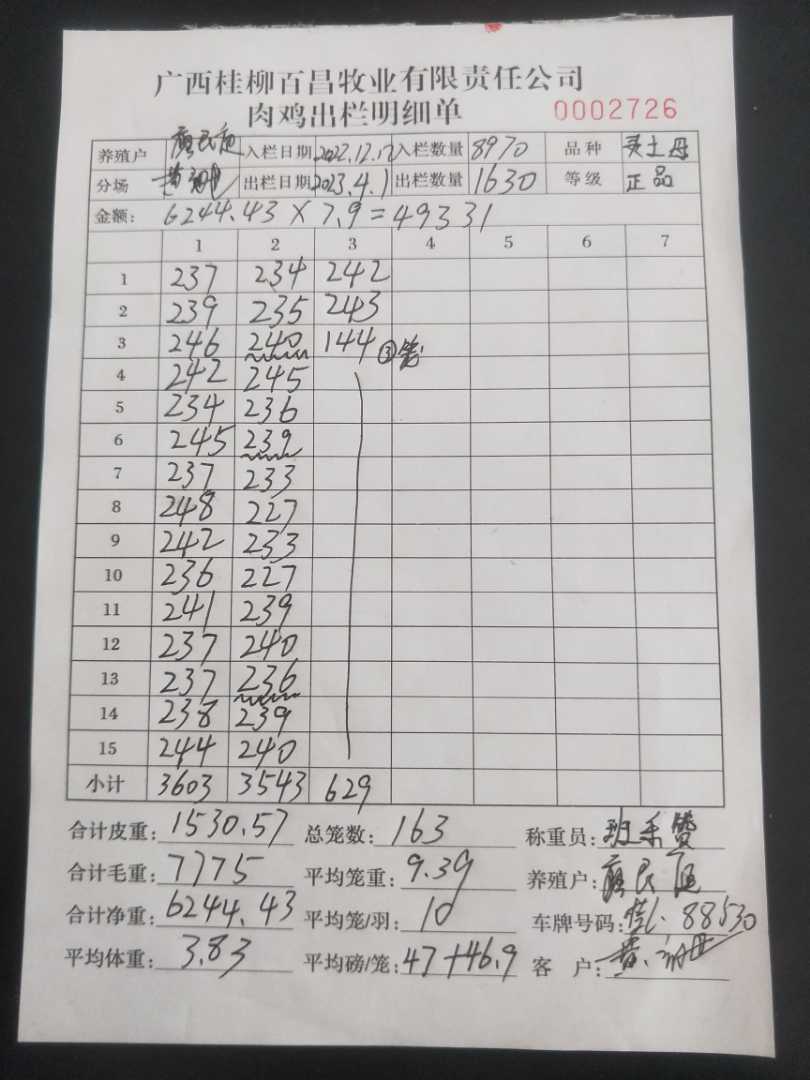 广西桂柳百昌牧业有限责任公司
肉鸡出栏明细单 0002726
养殖户 入栏日期 2022.12.12 入栏数量 8970 品种 灵土母
分场 出栏日期 2023.4.1 出栏数量 1630 等级 正品
金额: 6244.43 × 7.9 = 49331
1 2 3 4 5 6 7
1 237 234 242
2 239 235 243
3 246 240 144 ③笼
4 242 245
5 234 236
6 245 239
7 237 233
8 248 227
9 242 233
10 236 227
11 241 239
12 237 240
13 237 236
14 238 239
15 244 240
小计 3603 3543 629
合计皮重: 1530.57 总笼数: 163 称重员: 班
合计毛重: 7775 平均笼重: 9.39 养殖户:
合计净重: 6244.43 平均笼/羽: 10 车牌号码: 88530
平均体重: 3.83 平均磅/笼: 47+46.9 客 户: